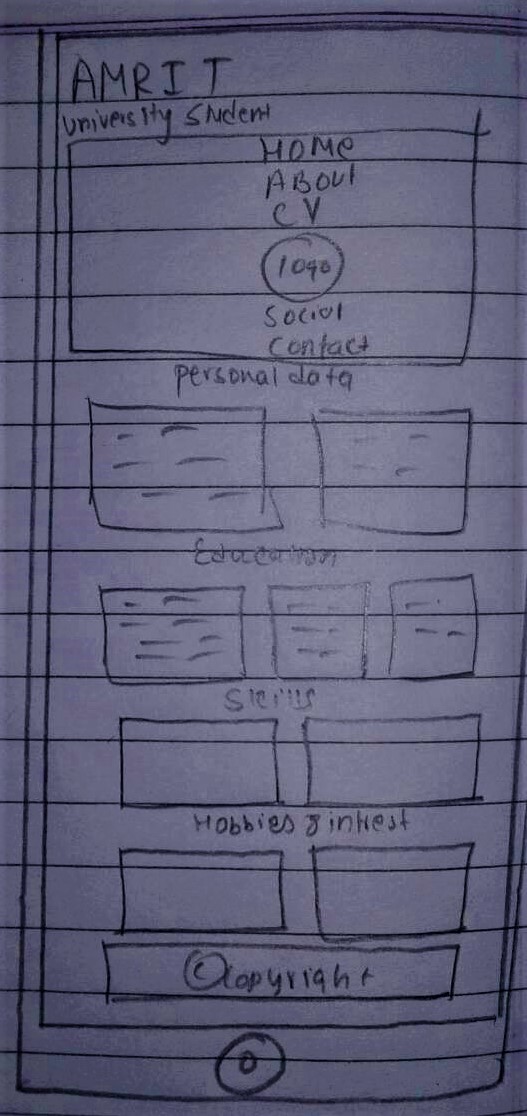 AMRIT
University Student
HOME
ABOUT
CV
logo
Social
Contact
Personal data
Education
Skills
Hobbies & intrest
© Copyright